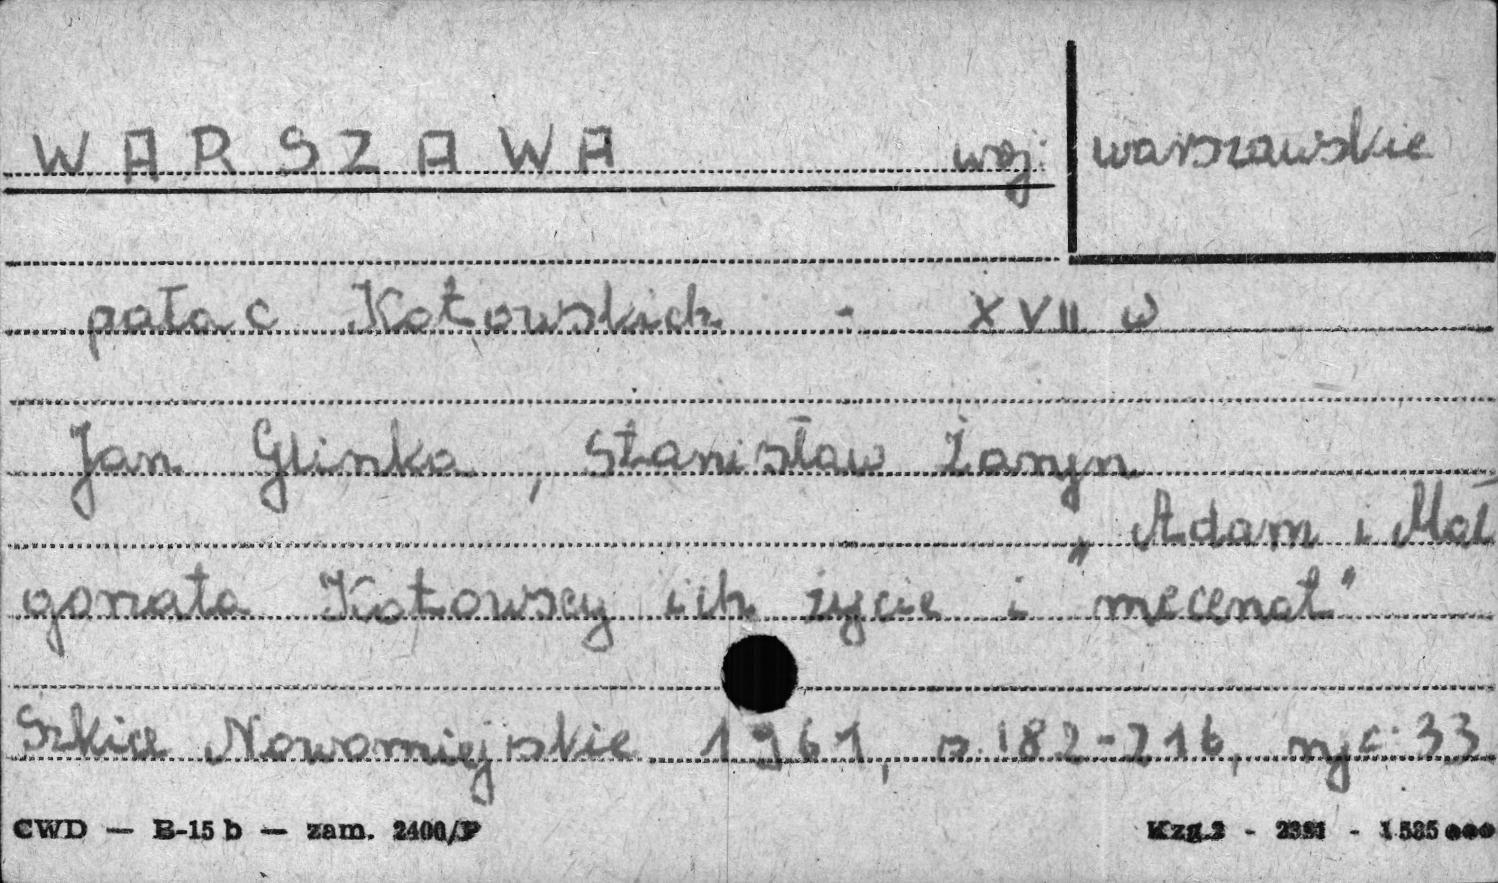 WARSZAWA woj. warszawskie
pałac Kotowskich - XVII w
Jan Glinka, Stanisław Żaryn
„Adam i Mał
gorzata Kotowscy ich życie i mecenat"
Szkice Nowomiejskie 1961, s. 182-216, ryc. 33
CWD — B-15 b — zam. 2400/P
Kzg.2 -